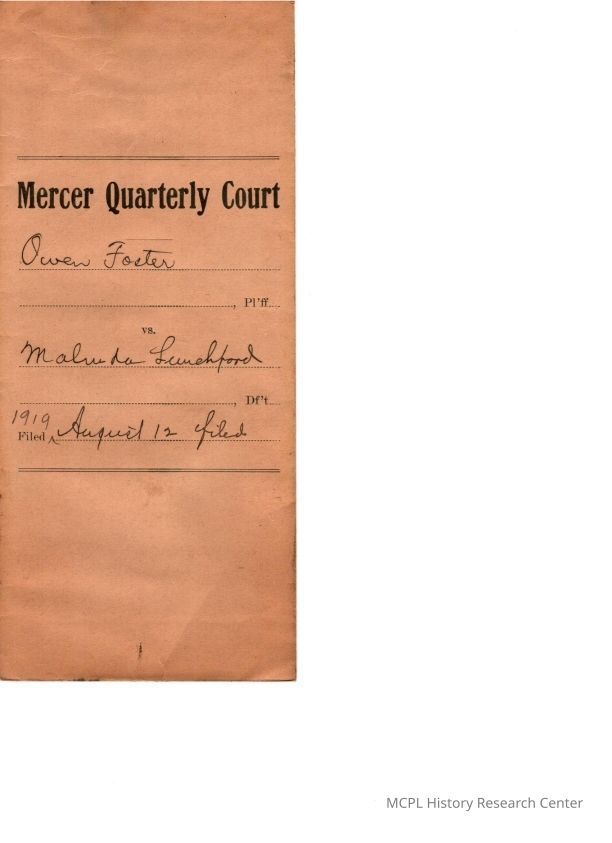 Mercer Quarterly Court
Owen Foster
, Pl'ff.
vs.
Malinda Lunchford
, Df't.
1919
Filed ^ August 12 filed
MCPL History Research Center